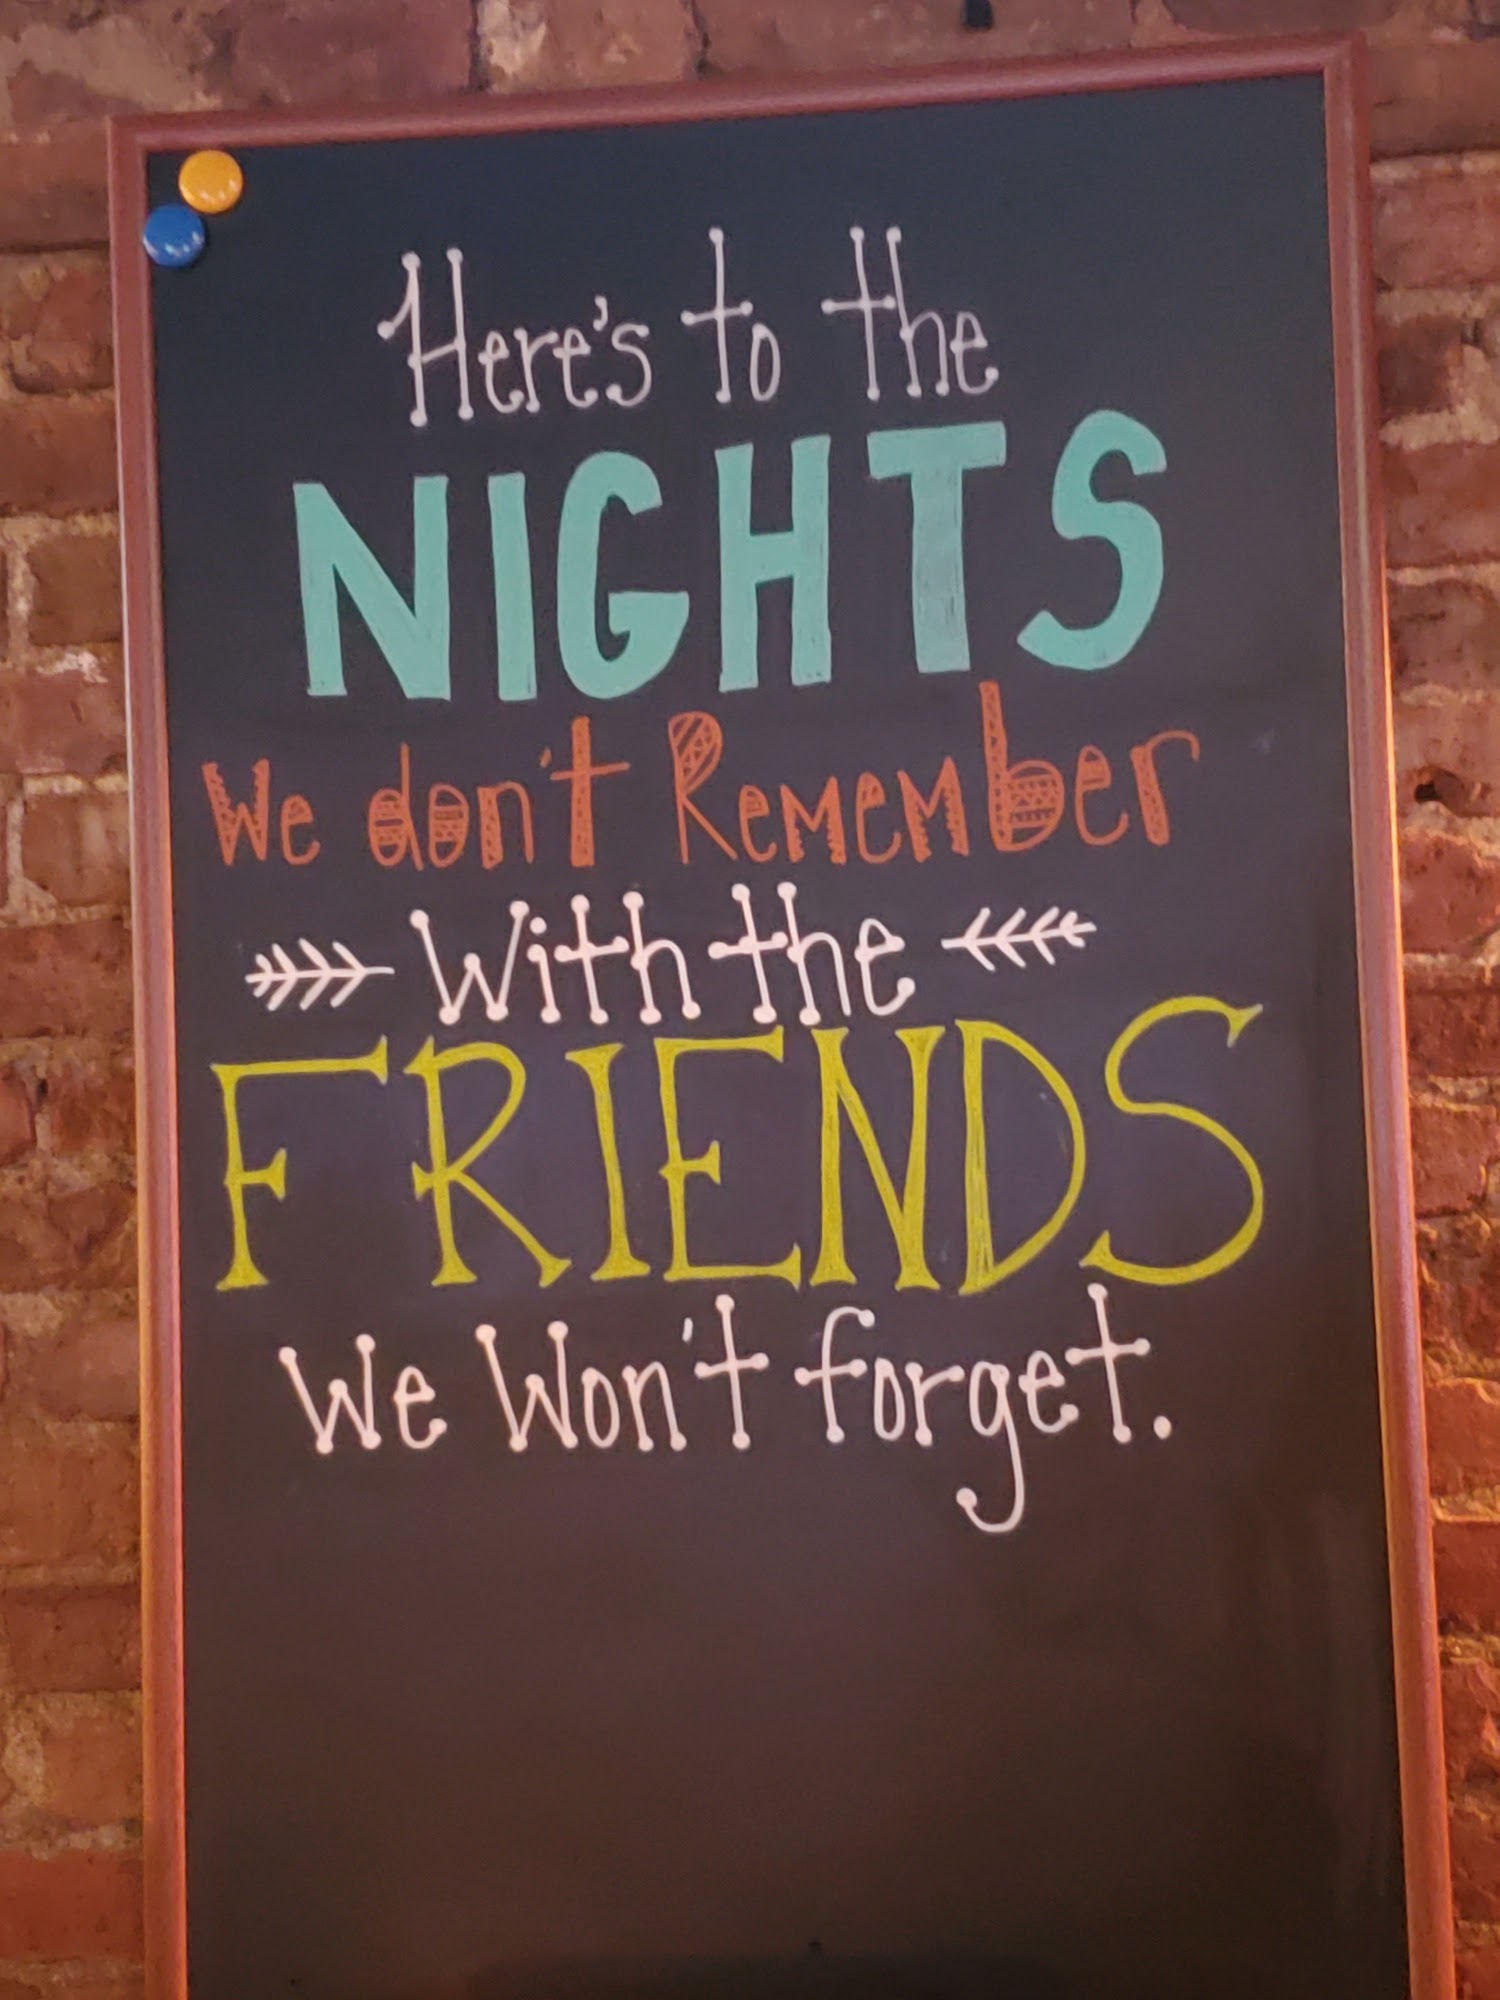 Here's to the
NIGHTS
We don't Remember
With the
FRIENDS
We Won't forget.